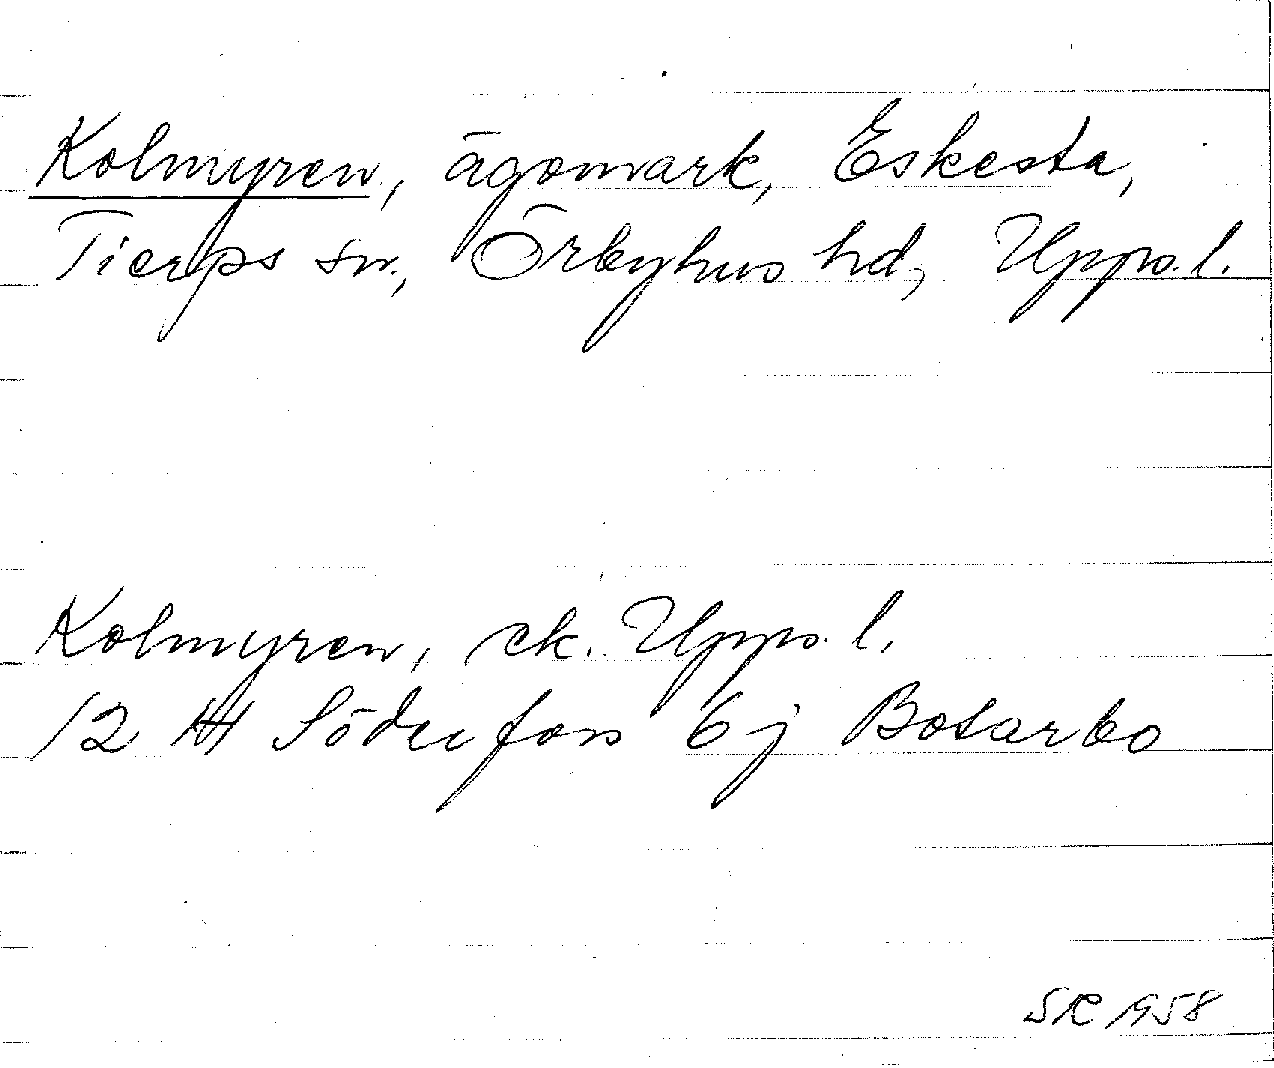 Kolmyren, ägomark, Eskesta,
Tierps sn., Örbyhus hd, Upps. l.
Kolmyren, ek. Upps. l.
12 H Söderfors 6j Botarbo
SR 1958